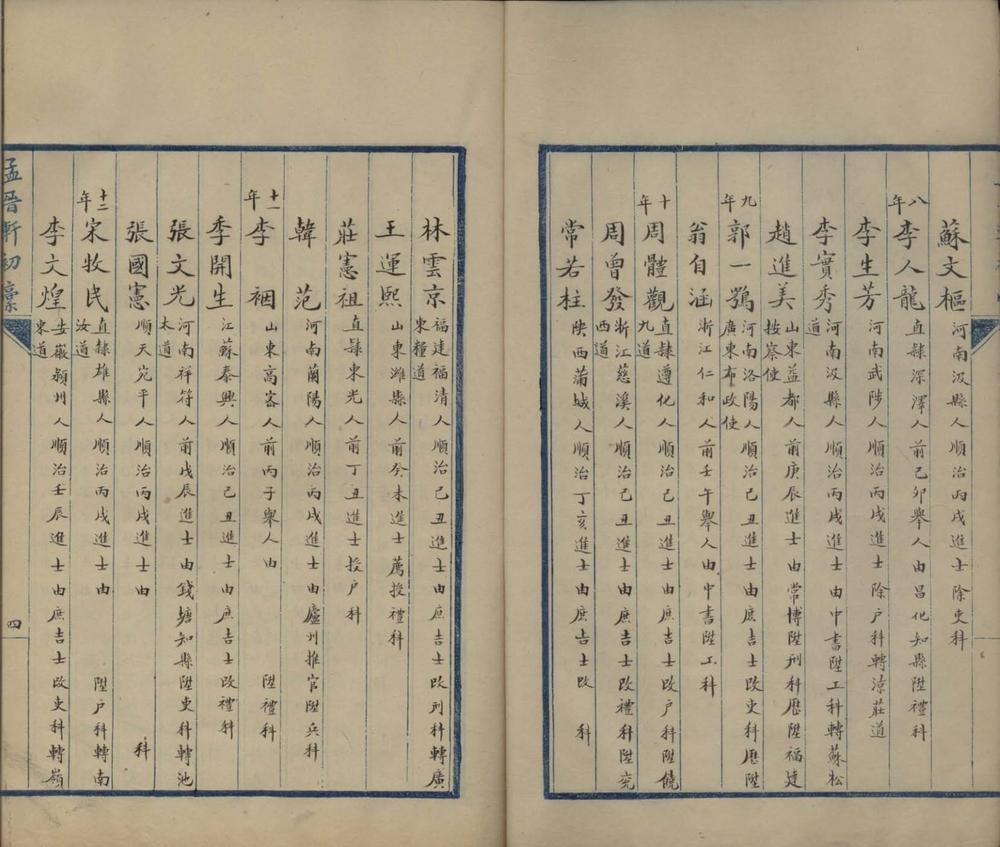 蘇文樞 河南汲縣人順治丙戌進士除吏科
八年 李人龍 直隸深澤人前己卯舉人由昌化知縣陞禮科
李生芳 河南武陟人順治丙戌進士除户科轉涼莊道
李實秀 河南汲縣人順治丙戌進士由中書陞工科轉蘇松道
趙進美 山東益都人前庚辰進士由常博陞刑科歷陞福建按察使
九年 郭一鶚 河南洛陽人順治己丑進士由庶吉士改吏科歷陞廣東布政使
翁自涵 浙江仁和人前壬午舉人由中書陞工科
十年 周體觀 直隸遵化人順治己丑進士由庶吉士改户科陞饒九道
周曾發 浙江慈溪人順治己丑進士由庶吉士改禮科陞兖西道
常若柱 陝西蒲城人順治丁亥進士由庶吉士改 科
林雲京 福建福清人順治己丑進士由庶吉士改刑科轉廣東糧道
王運熙 山東濰縣人前癸未進士薦授禮科
莊憲祖 直隸東光人前丁丑進士授户科
韓范 河南蘭陽人順治丙戌進士由廬州推官陞兵科
十一年 李裀 山東高密人前丙子舉人由 陞禮科
季開生 江蘇泰興人順治己丑進士由庶吉士改禮科
張文光 河南祥符人前戊辰進士由錢塘知縣陞吏科轉池太道
張國憲 順天宛平人順治丙戌進士由 科
十二年 宋牧民 直隸雄縣人順治丙戌進士由 陞户科轉南汝道
李文煌 安徽潁州人順治壬辰進士由庶吉士改吏科轉嶺東道
孟晉軒初藁
四